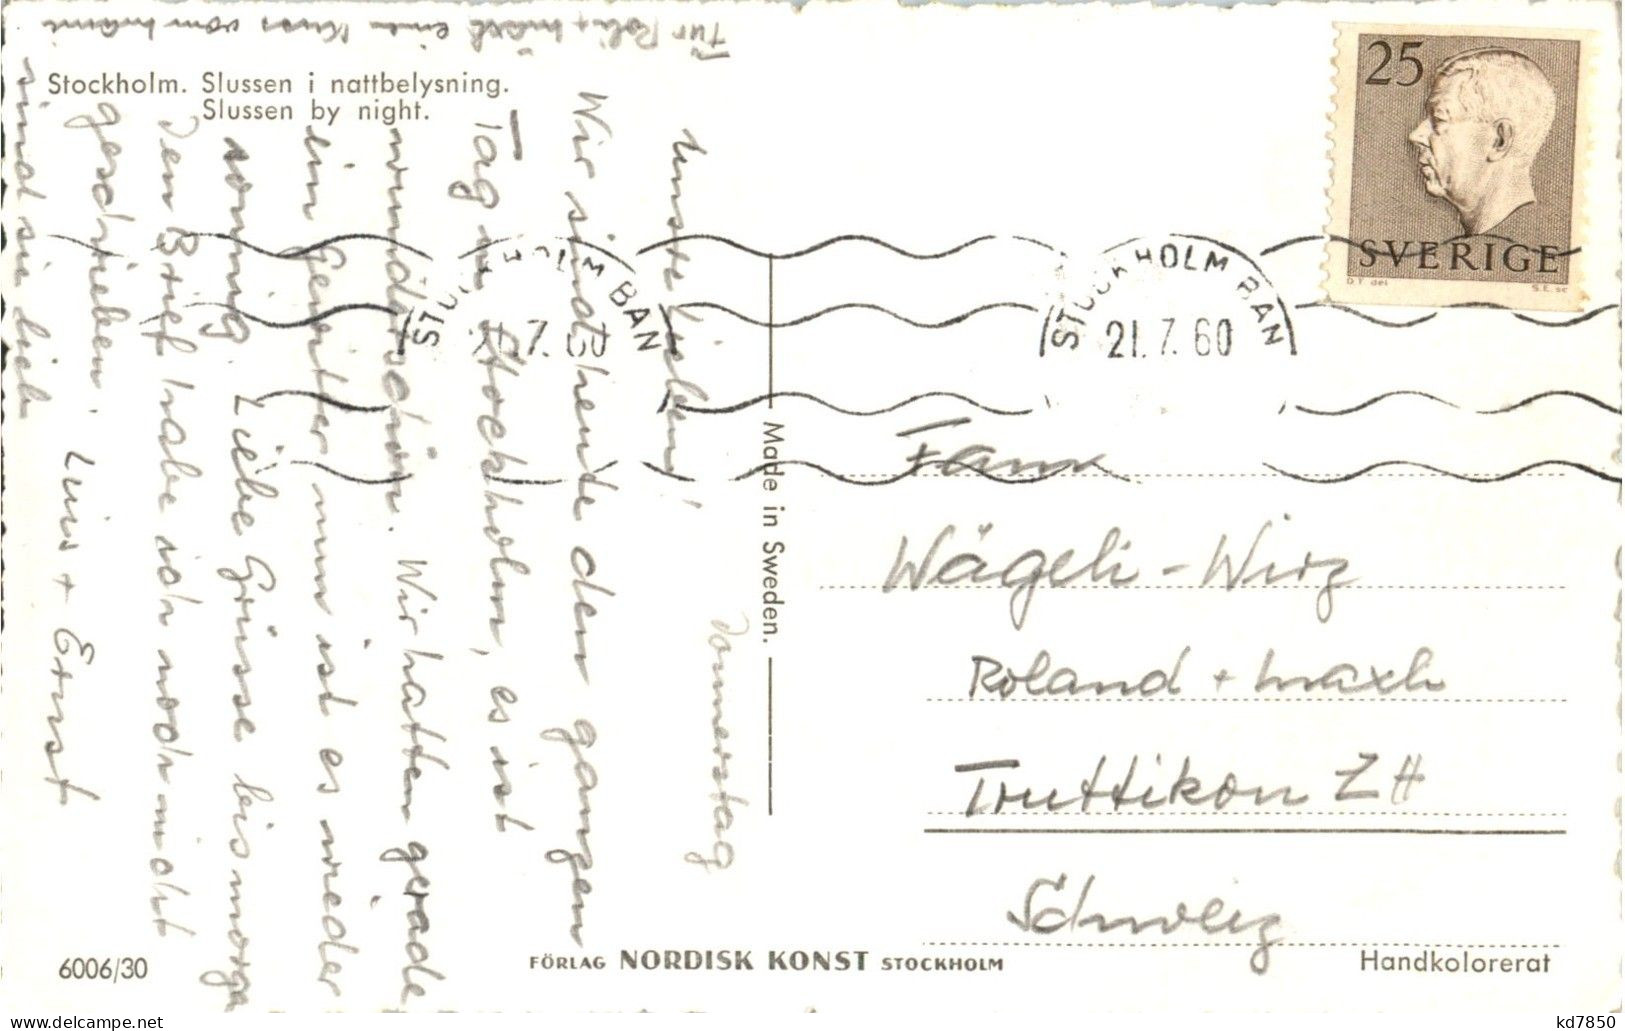 Stockholm. Slussen i nattbelysning.
Slussen by night.
Donnerstag
Unsre Lieben!
Wir sind heute den ganzen
Tag in Stockholm, es ist
wunderschön. Wir hatten gerade
ein Gewitter nun ist es wieder
sonnig. Liebe Grüsse bis morgen
Den Brief habe ich noch nicht
geschrieben. Luis + Ernst
sind sie lieb
Für Roli + Maxli einen Kuss vom Mami
STOCKHOLM BAN
21.7.60
STOCKHOLM BAN
21.7.60
25
SVERIGE
D.T. del
S.E. sc
Made in Sweden.
Fam
Wägeli - Wirz
Roland + Maxli
Truttikon ZH
Schweiz
6006/30
FÖRLAG NORDISK KONST STOCKHOLM
Handkolorerat
delcampe.net
kd7850